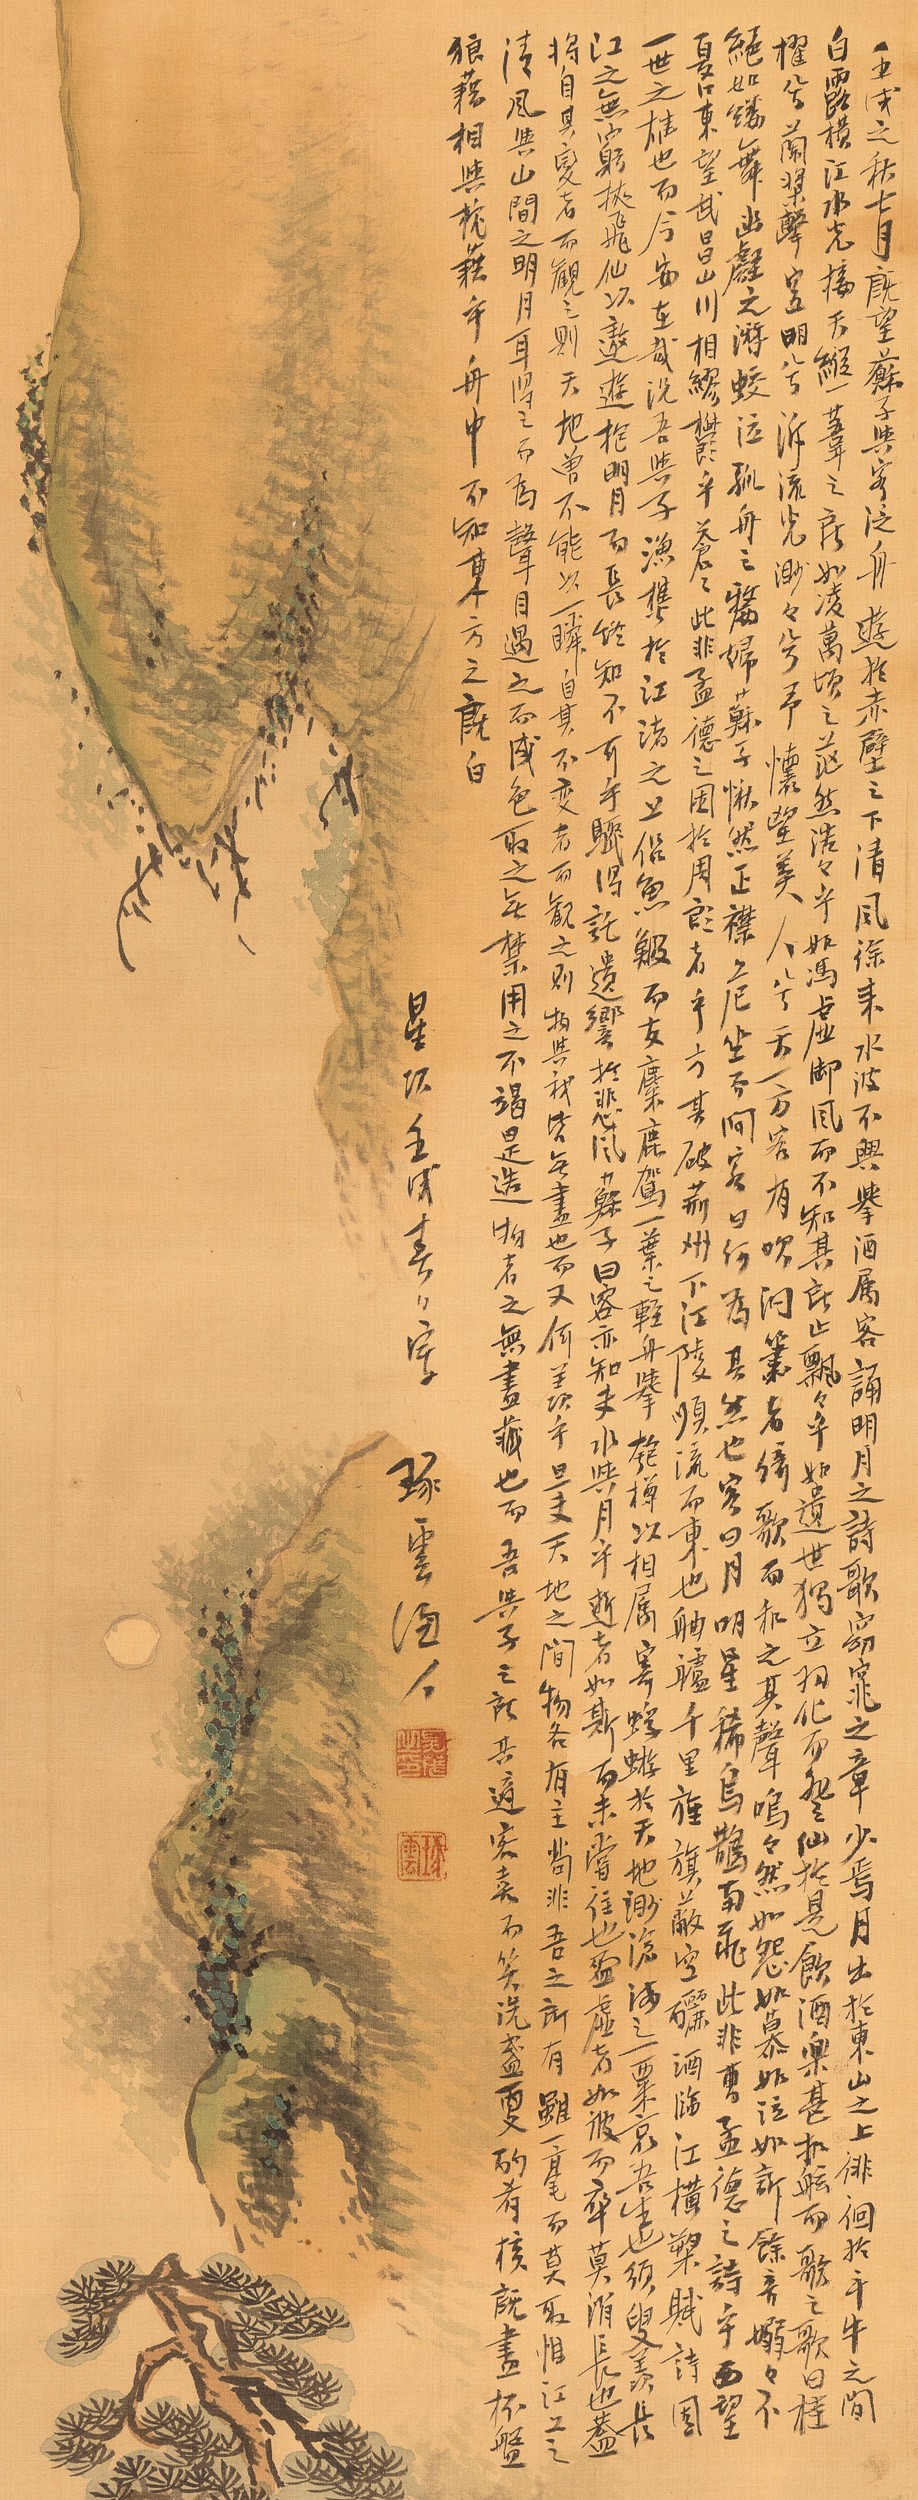 壬戌之秋七月既望蘇子與客泛舟遊於赤壁之下清風徐来水波不興舉酒属客誦明月之詩歌窈窕之章少焉月出於東山之上徘徊於斗牛之間
白露横江水光接天縱一葦之所如凌萬頃之茫然浩々乎如馮虚御風而不知其所止飄々乎如遺世独立羽化而登仙於是飲酒楽甚扣舷而歌之歌曰桂
櫂兮蘭槳擊空明兮泝流光渺々兮予懐望美人兮天一方客有吹洞簫者倚歌而和之其聲嗚々然如怨如慕如泣如訴餘音嫋々不
絶如縷舞幽壑之潜蛟泣孤舟之嫠婦蘇子愀然正襟危坐而問客曰何為其然也客曰月明星稀烏鵲南飛此非曹孟德之詩乎西望
夏口東望武昌山川相繆欝乎蒼々此非孟德之困於周郎者乎方其破荊州下江陵順流而東也舳艫千里旌旗蔽空釃酒臨江横槊賦詩固
一世之雄也而今安在哉況吾與子漁樵於江渚之上侶魚鰕而友麋鹿駕一葉之輕舟舉匏樽以相属寄蜉蝣於天地渺滄海之一粟哀吾生也須臾羨長
江之無窮挾飛仙以遨遊抱明月而長終知不可乎驟得託遺響於悲風蘇子曰客亦知夫水與月乎逝者如斯而未嘗往也盈虚者如彼而卒莫消長也蓋
将自其変者而觀之則天地曽不能以一瞬自其不変者而観之則物與我皆無盡也而又何羨乎且夫天地之間物各有主苟非吾之所有雖一毫而莫取惟江上之
清風與山間之明月耳得之而為聲目遇之而成色取之無禁用之不竭是造物者之無盡蔵也而吾與子之所共適客喜而笑洗盞更酌肴核既盡杯盤
狼藉相與枕藉乎舟中不知東方之既白
星次壬戌春日寫
琢雲酒人
琢雲